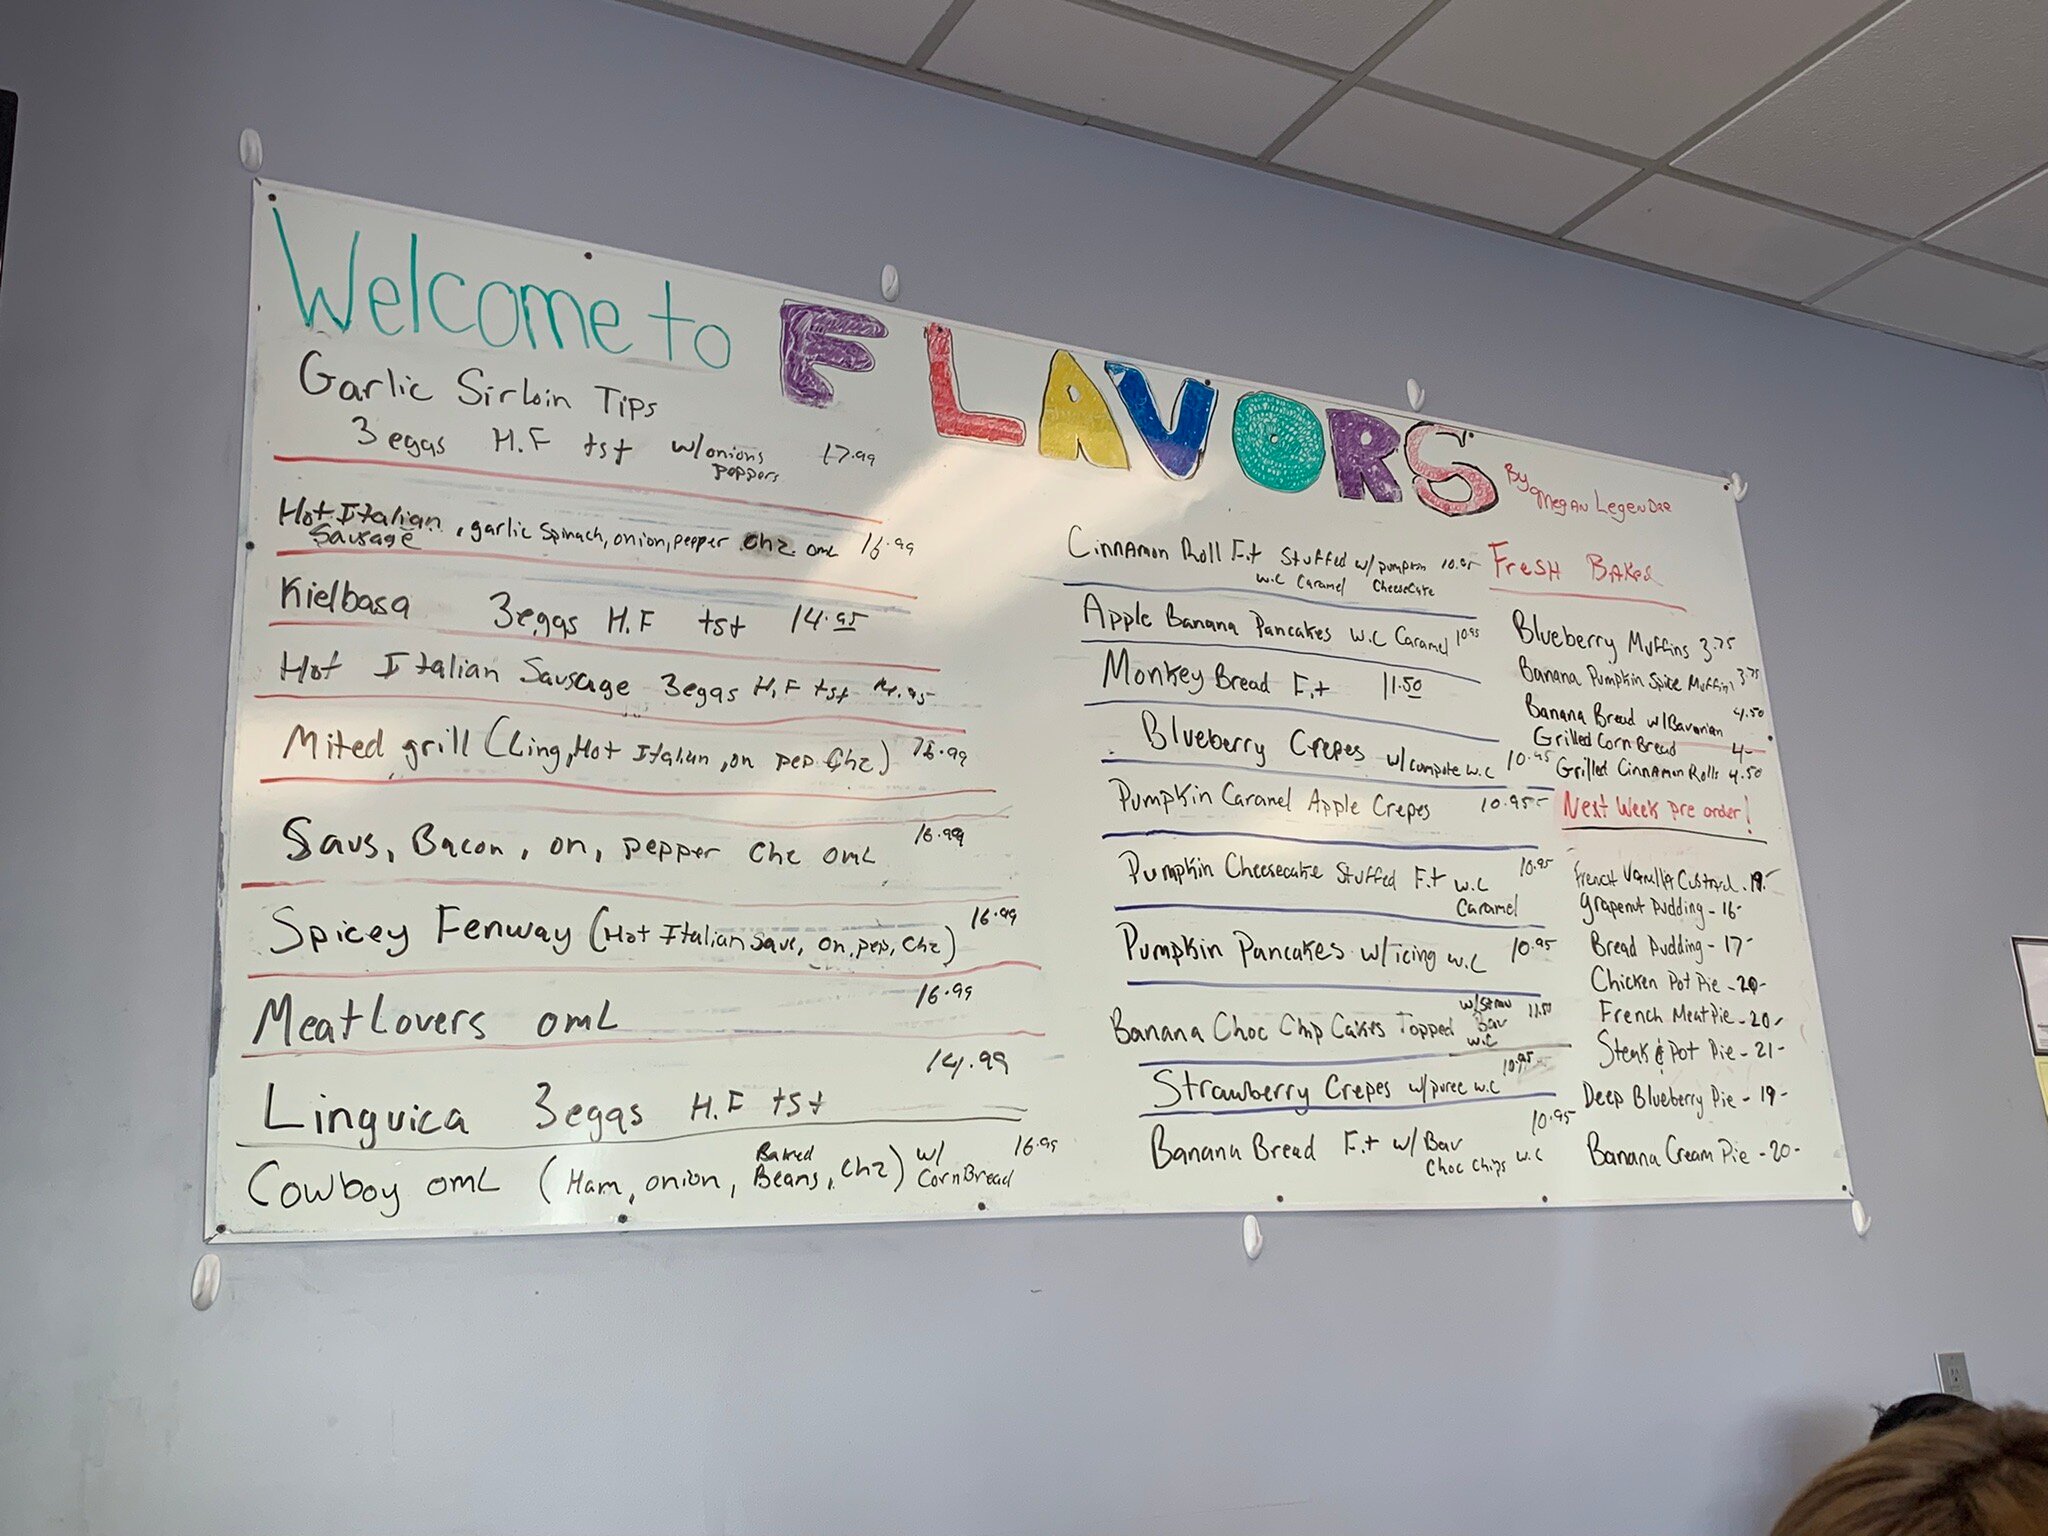 Welcome to FLAVORS
By Megan Legendre
Garlic Sirloin Tips
3 eggs H.F tst w/onions peppers 17.99
Hot Italian Sausage, garlic Spinach, onion, pepper chz omL 16.99
Kielbasa 3eggs H.F tst 14.95
Hot Italian Sausage 3eggs H.F tst 14.95
Mited grill (Ling, Hot Italian, on pep Chz) 16.99
Saus, Bacon, on, pepper chz omL 16.99
Spicey Fenway (Hot Italian Saus, on, pep, Chz) 16.99
MeatLovers omL 16.99
Linguica 3eggs H.F tst 14.99
Cowboy omL (Ham, onion, Baked Beans, chz) w/ CornBread 16.99
Cinnamon Roll F.t Stuffed w/pumpkin 10.95
w.c Caramel Cheesecake
Apple Banana Pancakes w.c Caramel 10.95
Monkey Bread F.t 11.50
Blueberry Crepes w/compote w.c 10.95
Pumpkin Caramel Apple Crepes 10.95
Pumpkin Cheesecake Stuffed F.t w.c Caramel 10.95
Pumpkin Pancakes w/icing w.c 10.95
Banana Choc Chip Cakes Topped w/Straw Bav w.c 11.50
Strawberry Crepes w/puree w.c 10.95
Banana Bread F.t w/ Bav Choc Chips w.c 10.95
Fresh Baked
Blueberry Muffins 3.75
Banana Pumpkin Spice Muffins 3.75
Banana Bread w/Bavarian 4.50
Grilled Corn Bread 4-
Grilled Cinnamon Rolls 4.50
Next Week pre order!
French Vanilla Custard. 19.-
Grapenut pudding - 16-
Bread pudding - 17-
Chicken Pot Pie - 20-
French Meat Pie - 20-
Steak & Pot Pie - 21-
Deep Blueberry Pie - 19-
Banana Cream Pie - 20-